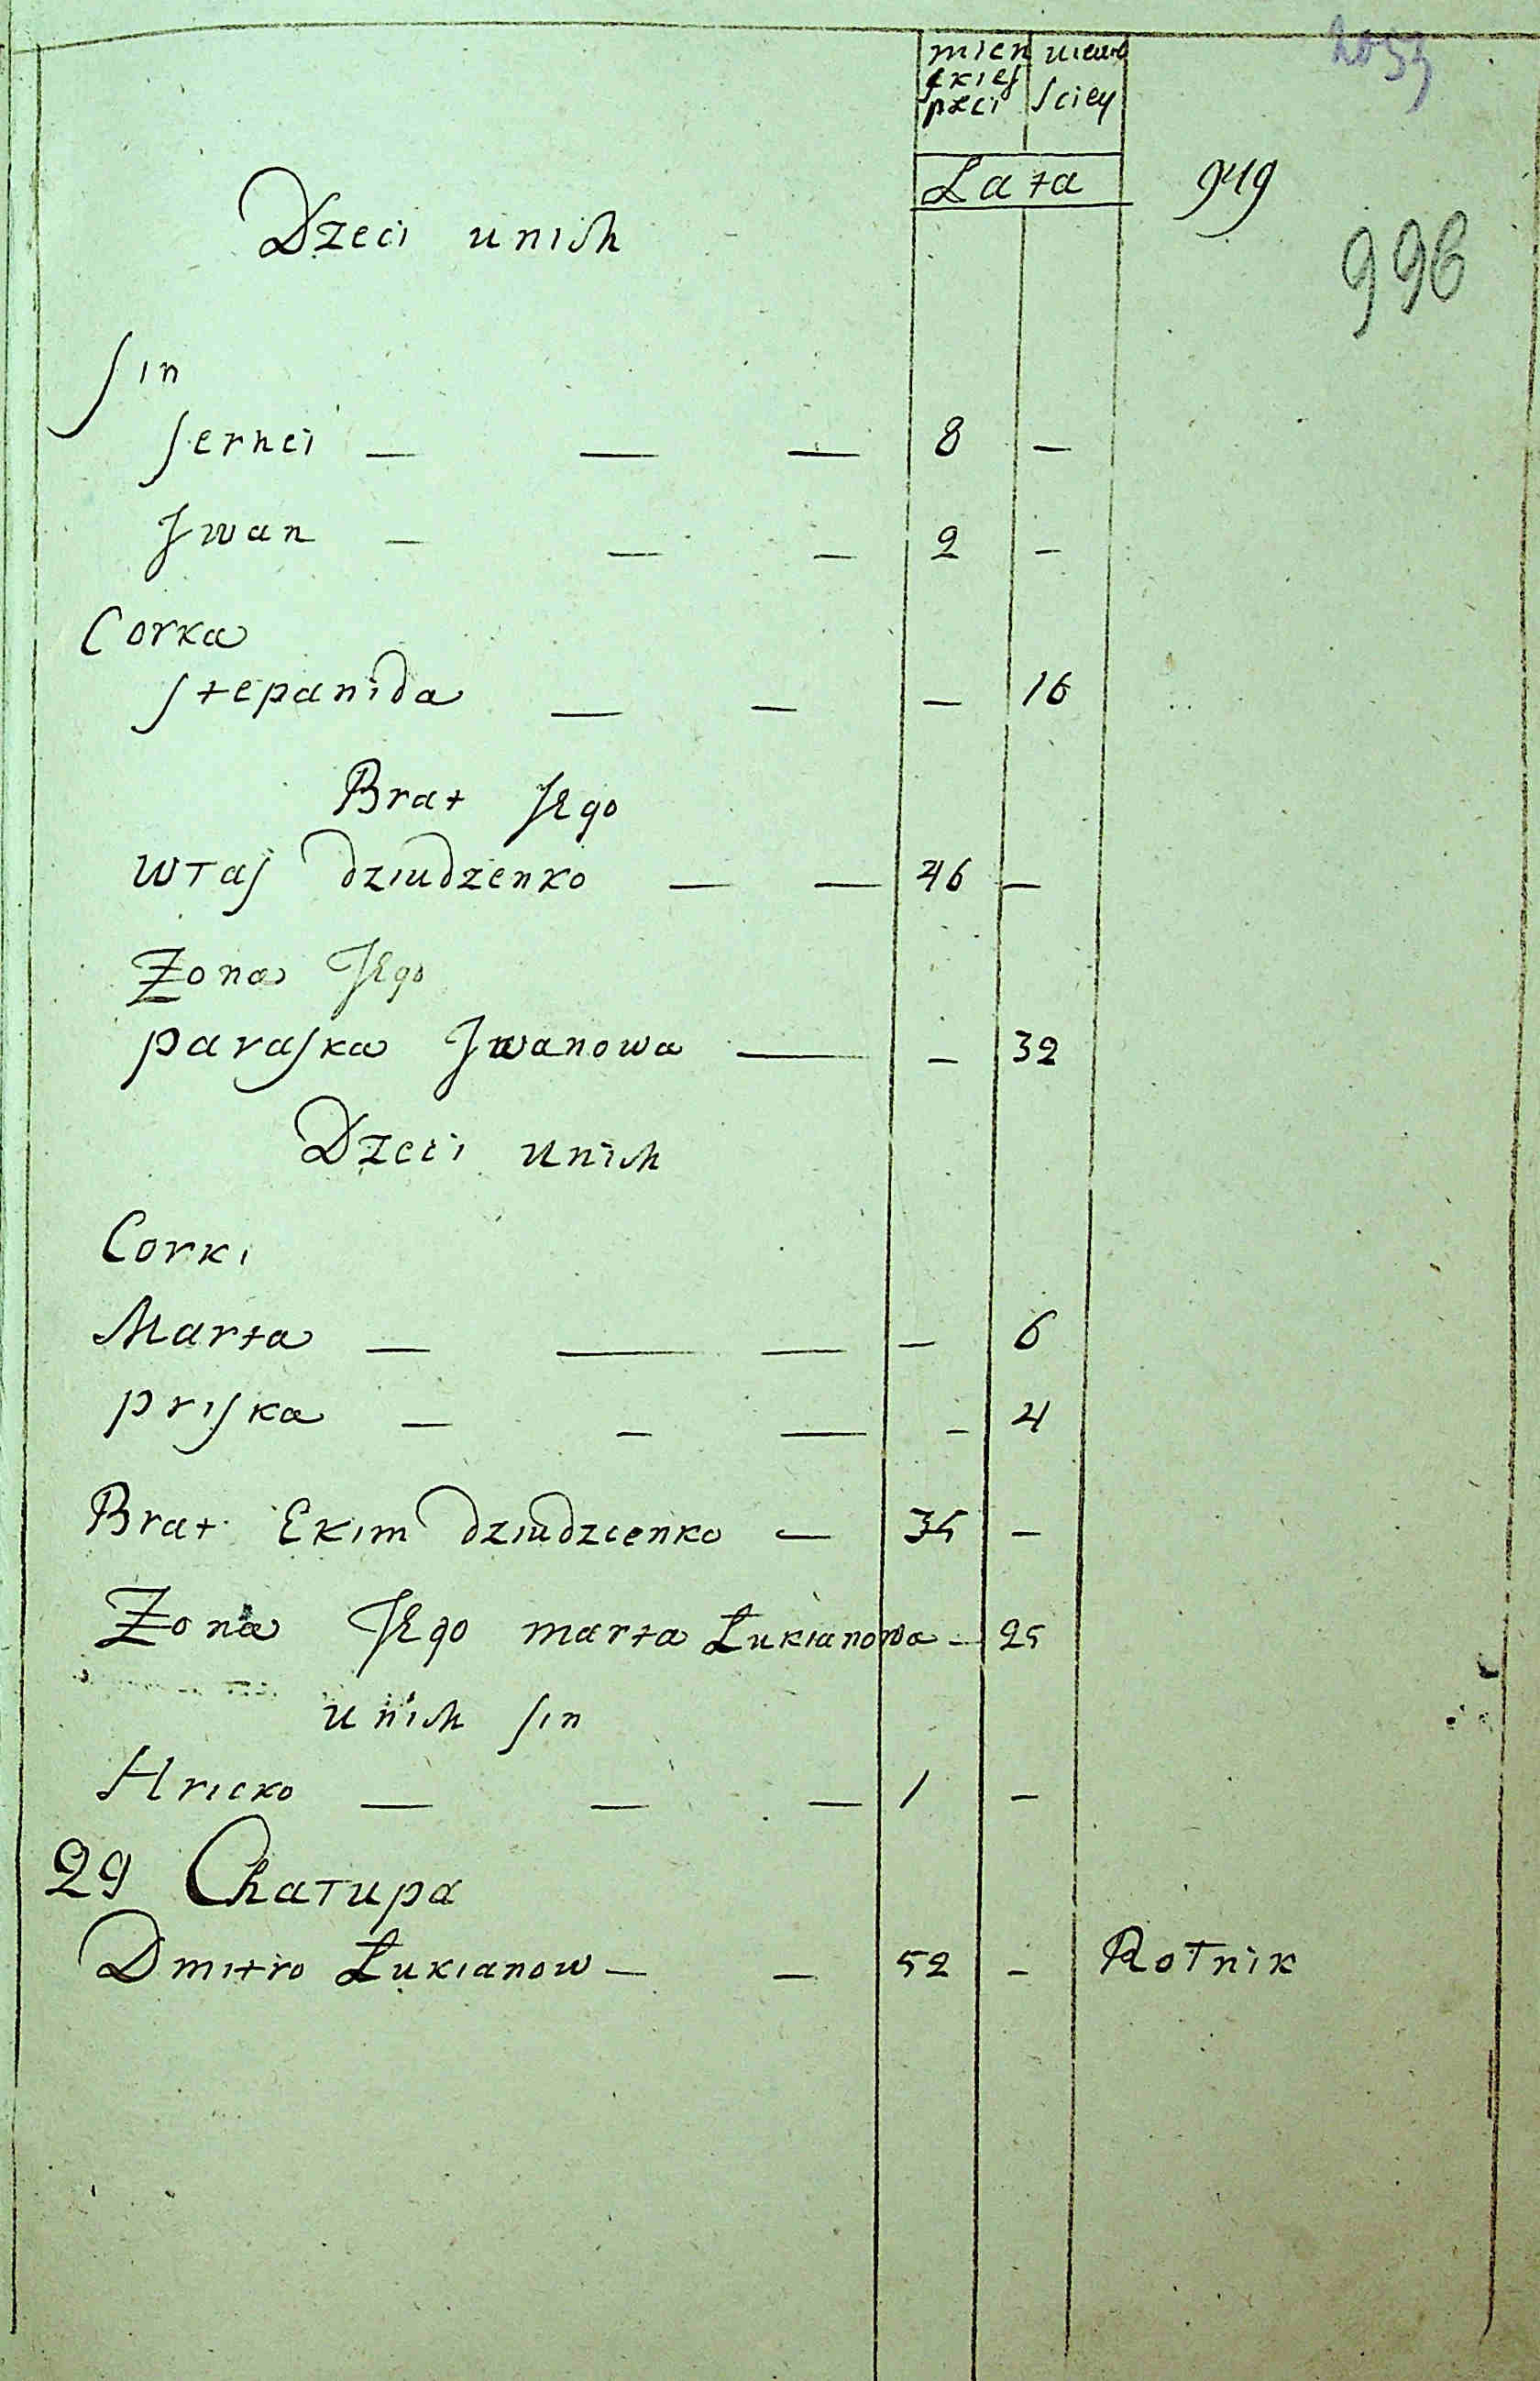 mien
skiej
płci
sciey
2053
Lata
949
Dzeci unich
996
sin
serhei — — — 8 —
Jwan — — — 2 —
Corka
stepanida — — — 16
Brat JEgo
Włas dziudzenko — — 46 —
Żona JEgo
paraska Jwanowa — — 32
Dzeci unich
Corki
Marta — — — — 6
priska — — — — 4
Brat Ekim dziudzienko — 35 —
Żona JEgo marta Łukianowa — 25
unich sin
Hricko — — — 1 —
29 Chałupa
Dmitro Łukianow — — 52 — Rolnik